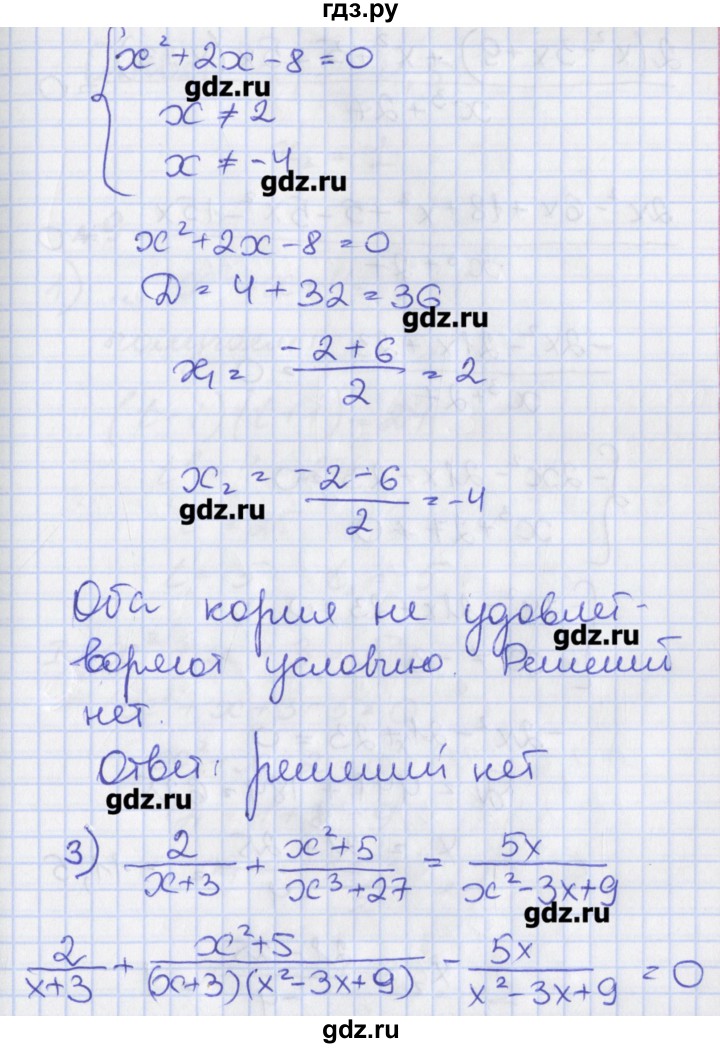 гдз.ру
x² + 2x - 8 = 0
gdz.ru
x ≠ 2
x ≠ -4
gdz.ru
x² + 2x - 8 = 0
D = 4 + 32 = 36
gdz.ru
x₁ = (-2 + 6)/2 = 2
x₂ = (-2 - 6)/2 = -4
gdz.ru
Оба корня не удовлет-
gdz.ru
воряют условию. Решений
нет.
Ответ: решений нет
gdz.ru
3) 2/(x+3) + (x²+5)/(x³+27) = 5x/(x²-3x+9)
gdz.ru
2/(x+3) + (x²+5)/((x+3)(x²-3x+9)) - 5x/(x²-3x+9) = 0
gdz.ru